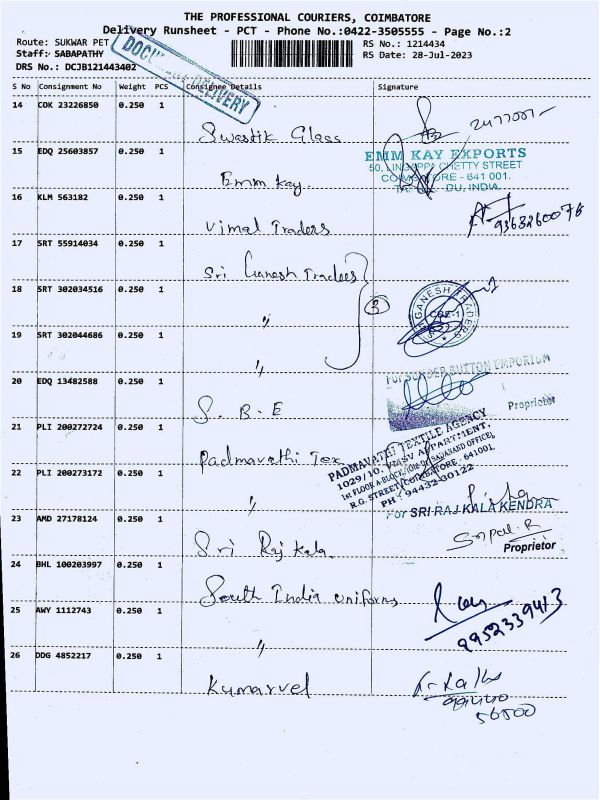 THE PROFESSIONAL COURIERS, COIMBATORE
Delivery Runsheet - PCT - Phone No.:0422-3505555 - Page No.:2
Route: SUKWAR PET
RS No.: 1214434
Staff: SABAPATHY
RS Date: 28-Jul-2023
DRS No.: DCJB121443402
DELIVERY
S No Consignment No Weight PCS Consignee Details Signature
14 COK 23226850 0.250 1
Swastik Glass
15 EDQ 25603857 0.250 1
EMM KAY EXPORTS
50, LINGAPPA CHETTY STREET
COIMBATORE - 641 001.
INDIA.
Emm Kay
16 KLM 563182 0.250 1
9363260076
Vimal Traders
17 SRT 55914034 0.250 1
Sri Ganesh Traders
18 SRT 302034516 0.250 1
3
GANESH TRADERS
CBE-1
"
19 SRT 302044686 0.250 1
"
For SUNDER BUTTON EMPORIUM
20 EDQ 13482588 0.250 1
Proprietor
S. B. E
21 PLI 200272724 0.250 1
PADMAVATHI TEXTILE AGENCY
1029/10, APARTMENT,
1st FLOOR A-BLOCK,
R.G. STREET, COIMBATORE - 641001.
PH : 94432-30122
Padmavathi Tex
22 PLI 200273172 0.250 1
"
For SRI RAJ KALA KENDRA
23 AMD 27178124 0.250 1
Proprietor
Sri Raj Kala
24 BHL 100203997 0.250 1
South India uniforms
25 AWY 1112743 0.250 1
9952339413
"
26 DDG 4852217 0.250 1
Kumarvel
56500